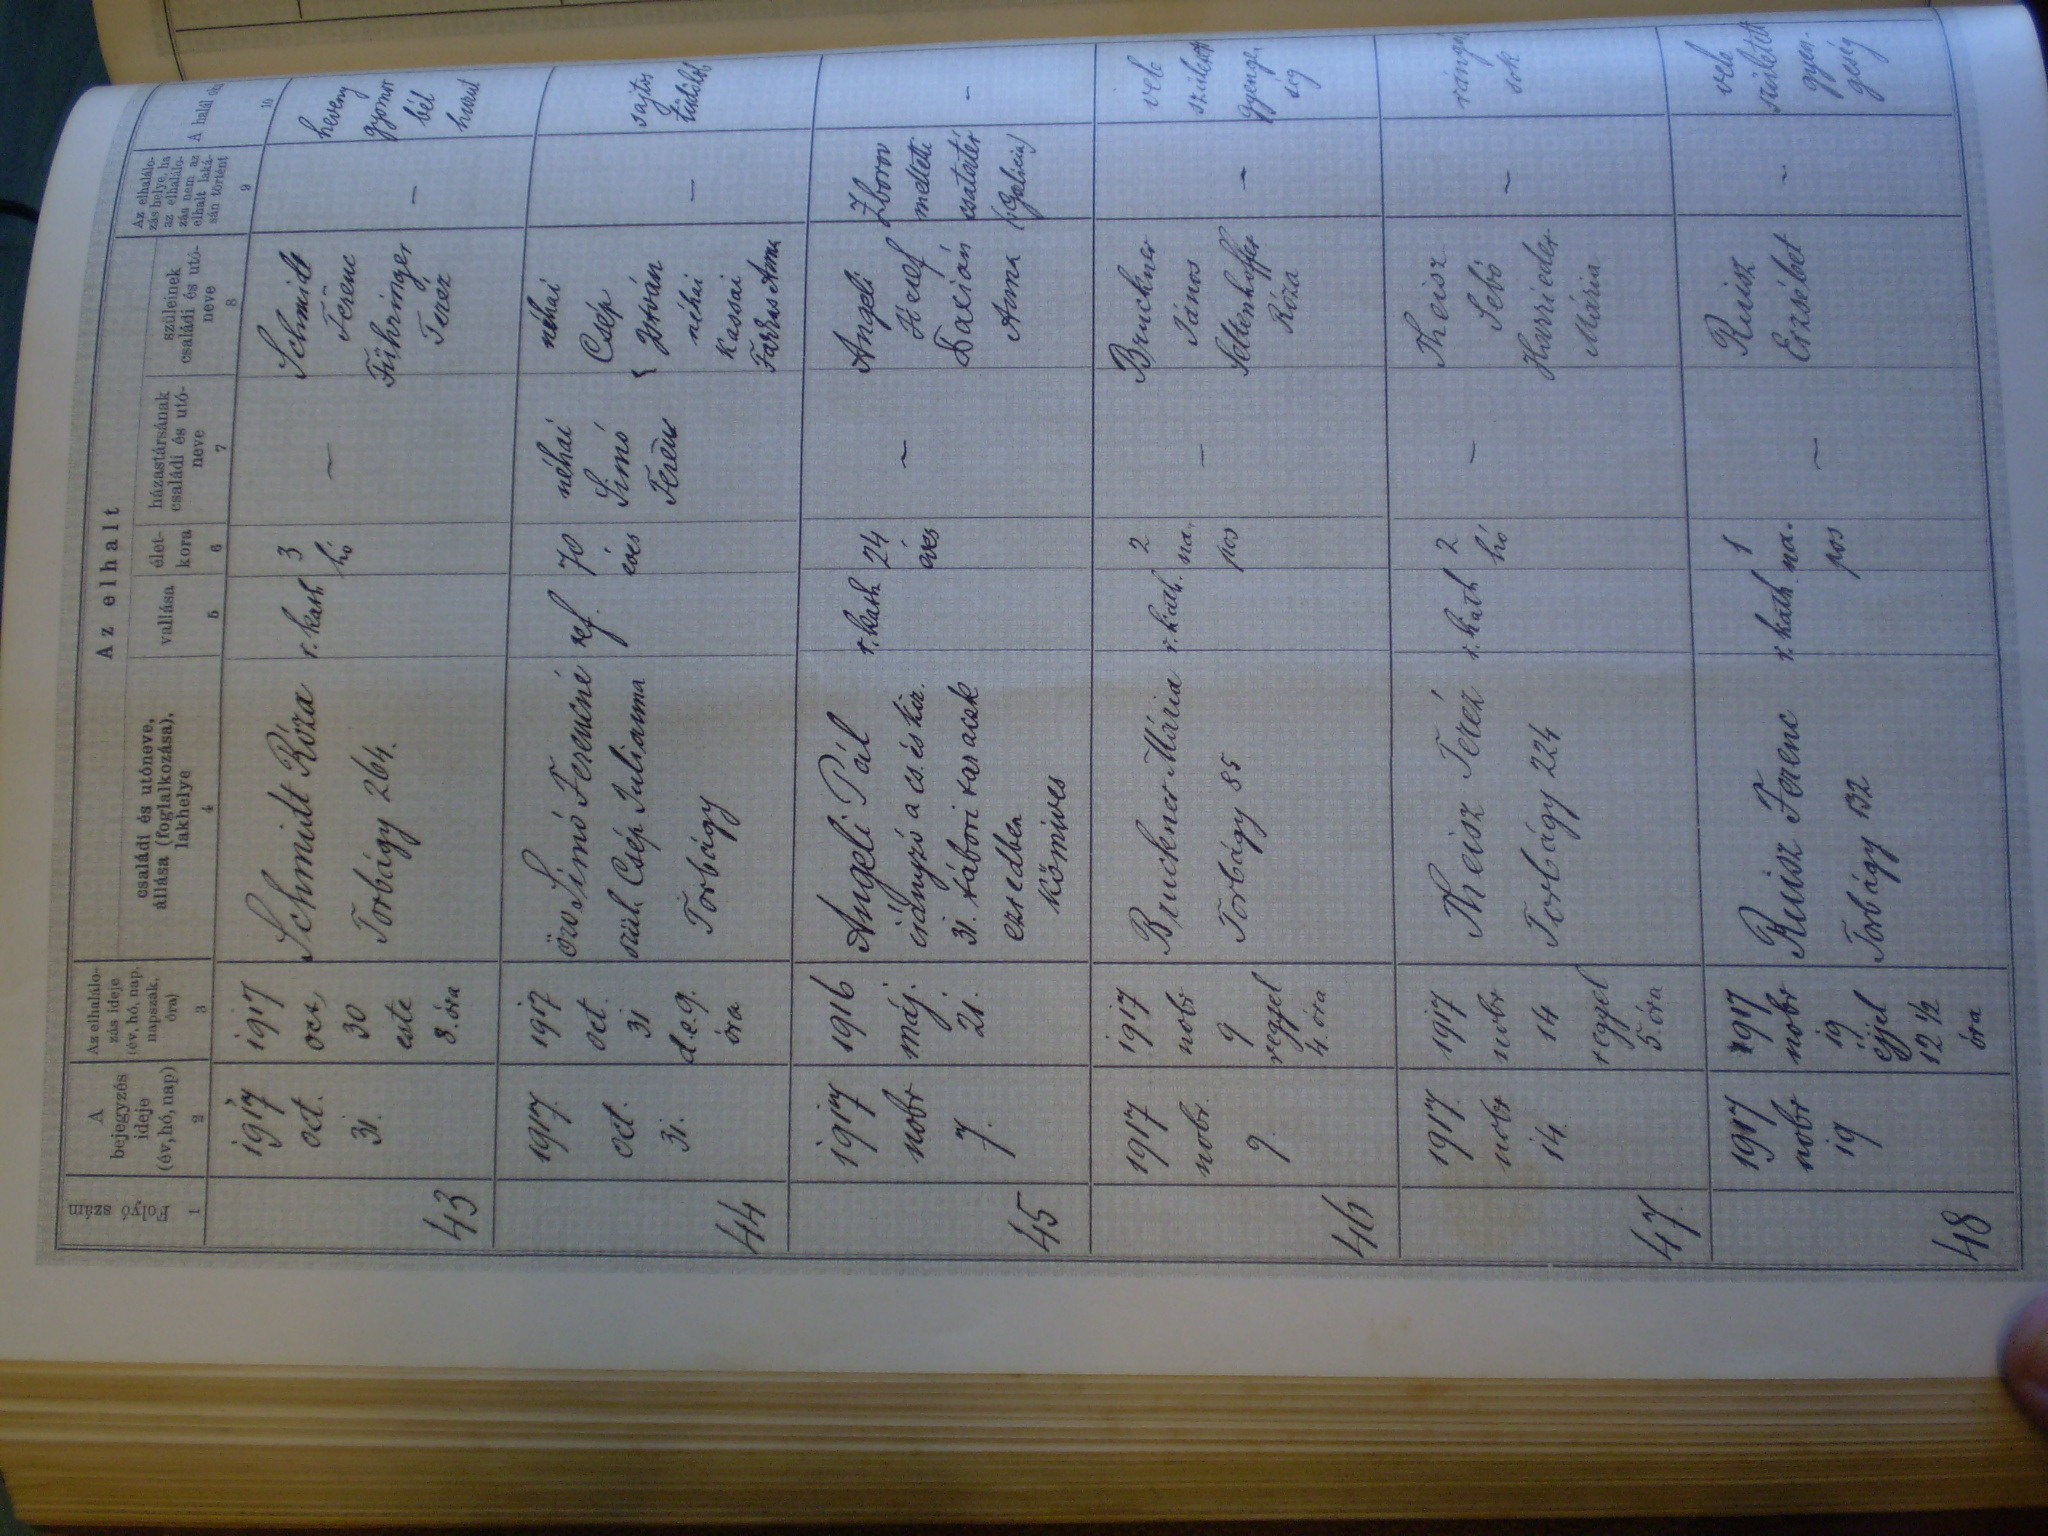 Az elhalt
Folyó szám
A bejegyzés ideje (év, hó, nap)
Az elhalálo-
zás ideje
(év, hó, nap,
napszak,
óra)
családi és utóneve,
állása (foglalkozása),
lakhelye
vallása
élet-
kora
házastársának
családi és utó-
neve
szüleinek
családi és utó-
neve
Az elhalálo-
zás helye, ha
az elhalálo-
zás nem az
elhalt laká-
sán történt
A halál
1 2 3 4 5 6 7 8 9 10
43
1917
oct.
31.
1917
oct.
30
este
8. óra
Schmidt Róza
Torbágy 264.
r. kath
3
hó
–
Schmidt
Ferenc
Führinger
Teréz
–
heveny
gyomor
bél
hurut
44
1917.
oct.
31.
1917
oct.
31
d.e. 9.
óra
özv. Simó Ferencné
szül. Csép Julianna
Torbágy
ref.
70
éves
néhai
Simó
Ferenc
néhai
Csép
István
néhai
Kassai
Farkas Anna
–
45
1917
nobr
7.
1916
máj.
21.
Angeli Pál
irányzó a cs. és kir.
31. tábori var acsk
ezredben
Kőmives
r. kath.
24
éves
–
Angeli
József
Anna
Zborov
melletti
csatatér
(Galicia)
–
46
1917.
nobr.
9.
1917
nobr
9
reggel
4. óra
Bruckner Mária
Torbágy 85
r. kath.
2
na-
pos
–
Bruckner
János
Róza
–
vele
született
gyenge
ség
47.
1917.
nobr
14.
1917
nobr
14
reggel
5. óra
Theisz Teréz
Torbágy 224
r. kath
2
hó
–
Theisz
Sebő
Harrieder
Mária
–
rángá
sok
48
1917
nobr
19
1917
nobr
19
éjjel
12 1/2
óra
Reisz Ferenc
Torbágy 132
r. kath
1
na-
pos
–
Reisz
Erzsébet
–
vele
született
gyen-
geség